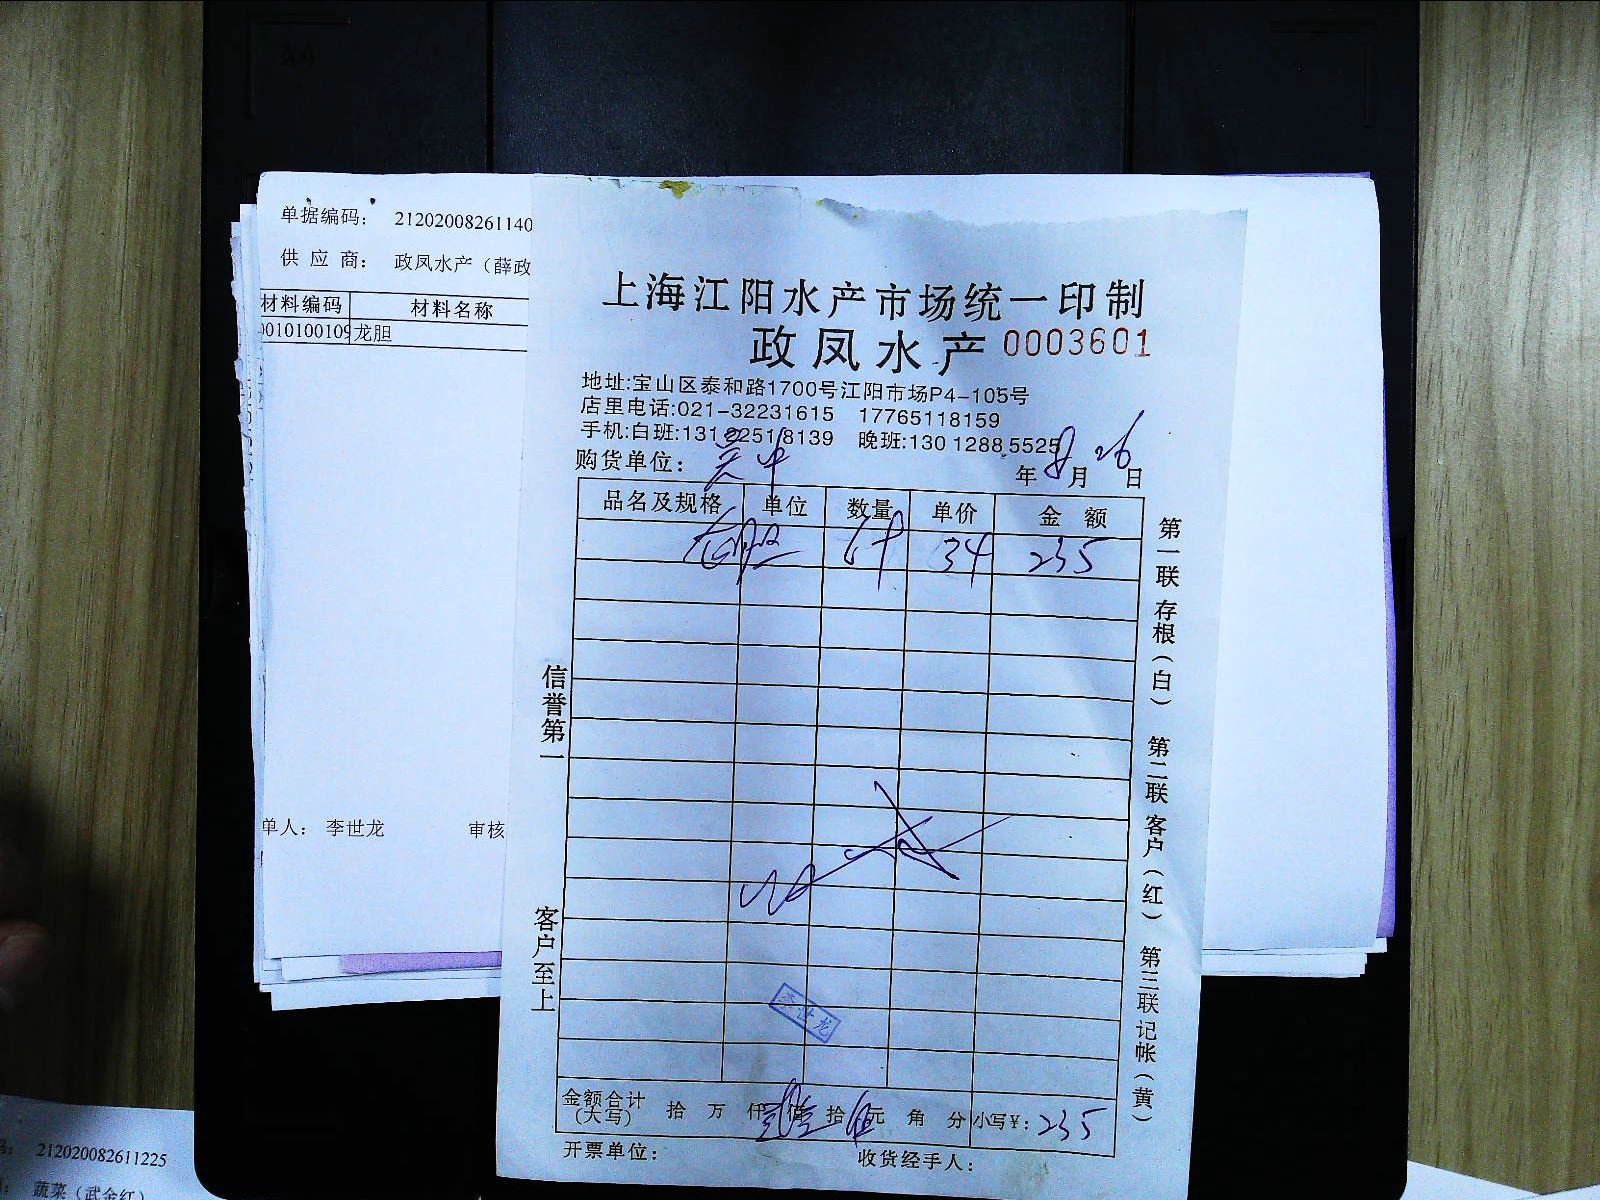 单据编码： 21202008261140
供 应 商： 政凤水产（薛政
材料编码 材料名称
0010100109 龙胆
单人： 李世龙 审核
上海江阳水产市场统一印制
政凤水产 0003601
地址:宝山区泰和路1700号江阳市场P4-105号
店里电话:021-32231615 17765118159
手机:白班:131 2251 8139 晚班:130 1288 5525
购货单位： 年 8 月 26 日
品名及规格 单位 数量 单价 金 额
龙胆 34 235
信誉第一
客户至上
第一联 存根（白） 第二联 客户（红） 第三联 记帐（黄）
李世龙
金额合计
(大写) 拾 万 仟 佰 拾 伍 元 角 分 小写¥: 235
开票单位： 收货经手人：
212020082611225
蔬菜（武金红）